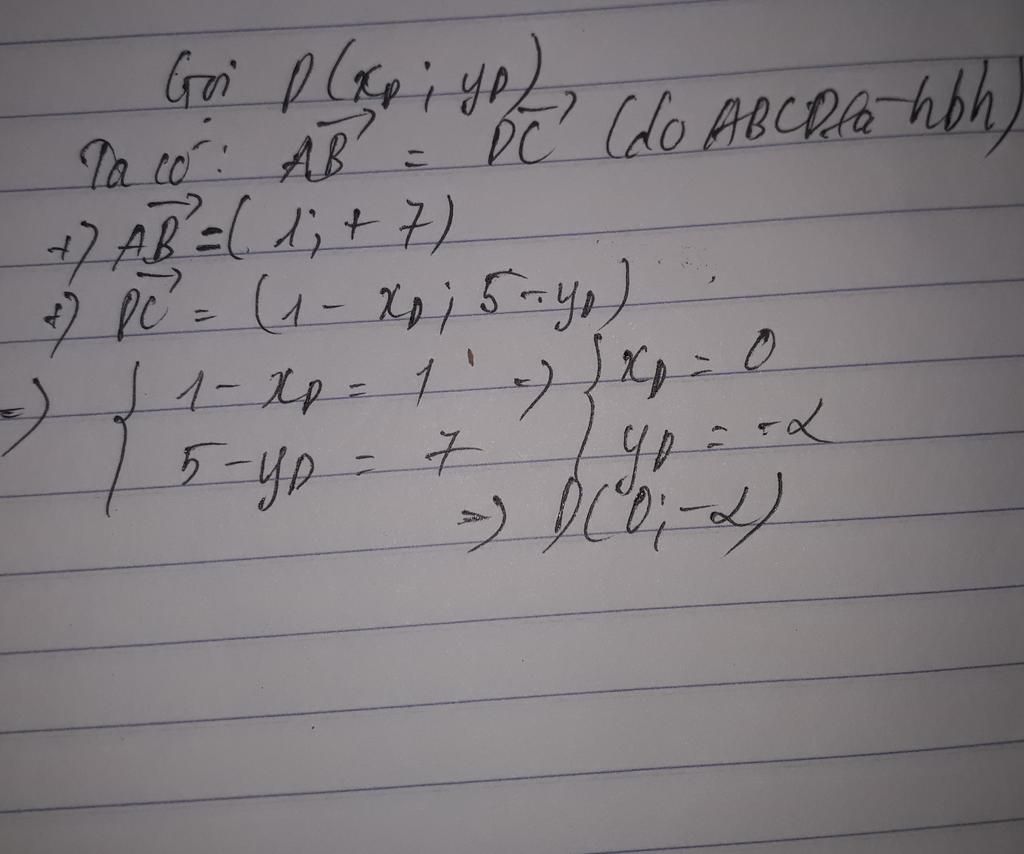 Gọi D(xD; yD)
Ta có: AB→ = DC→ (do ABCD là hbh)
+) AB→ = (1; +7)
+) DC→ = (1 - xD; 5 - yD)
=> { 1 - xD = 1 => { xD = 0
5 - yD = 7 yD = -2
=> D(0; -2)